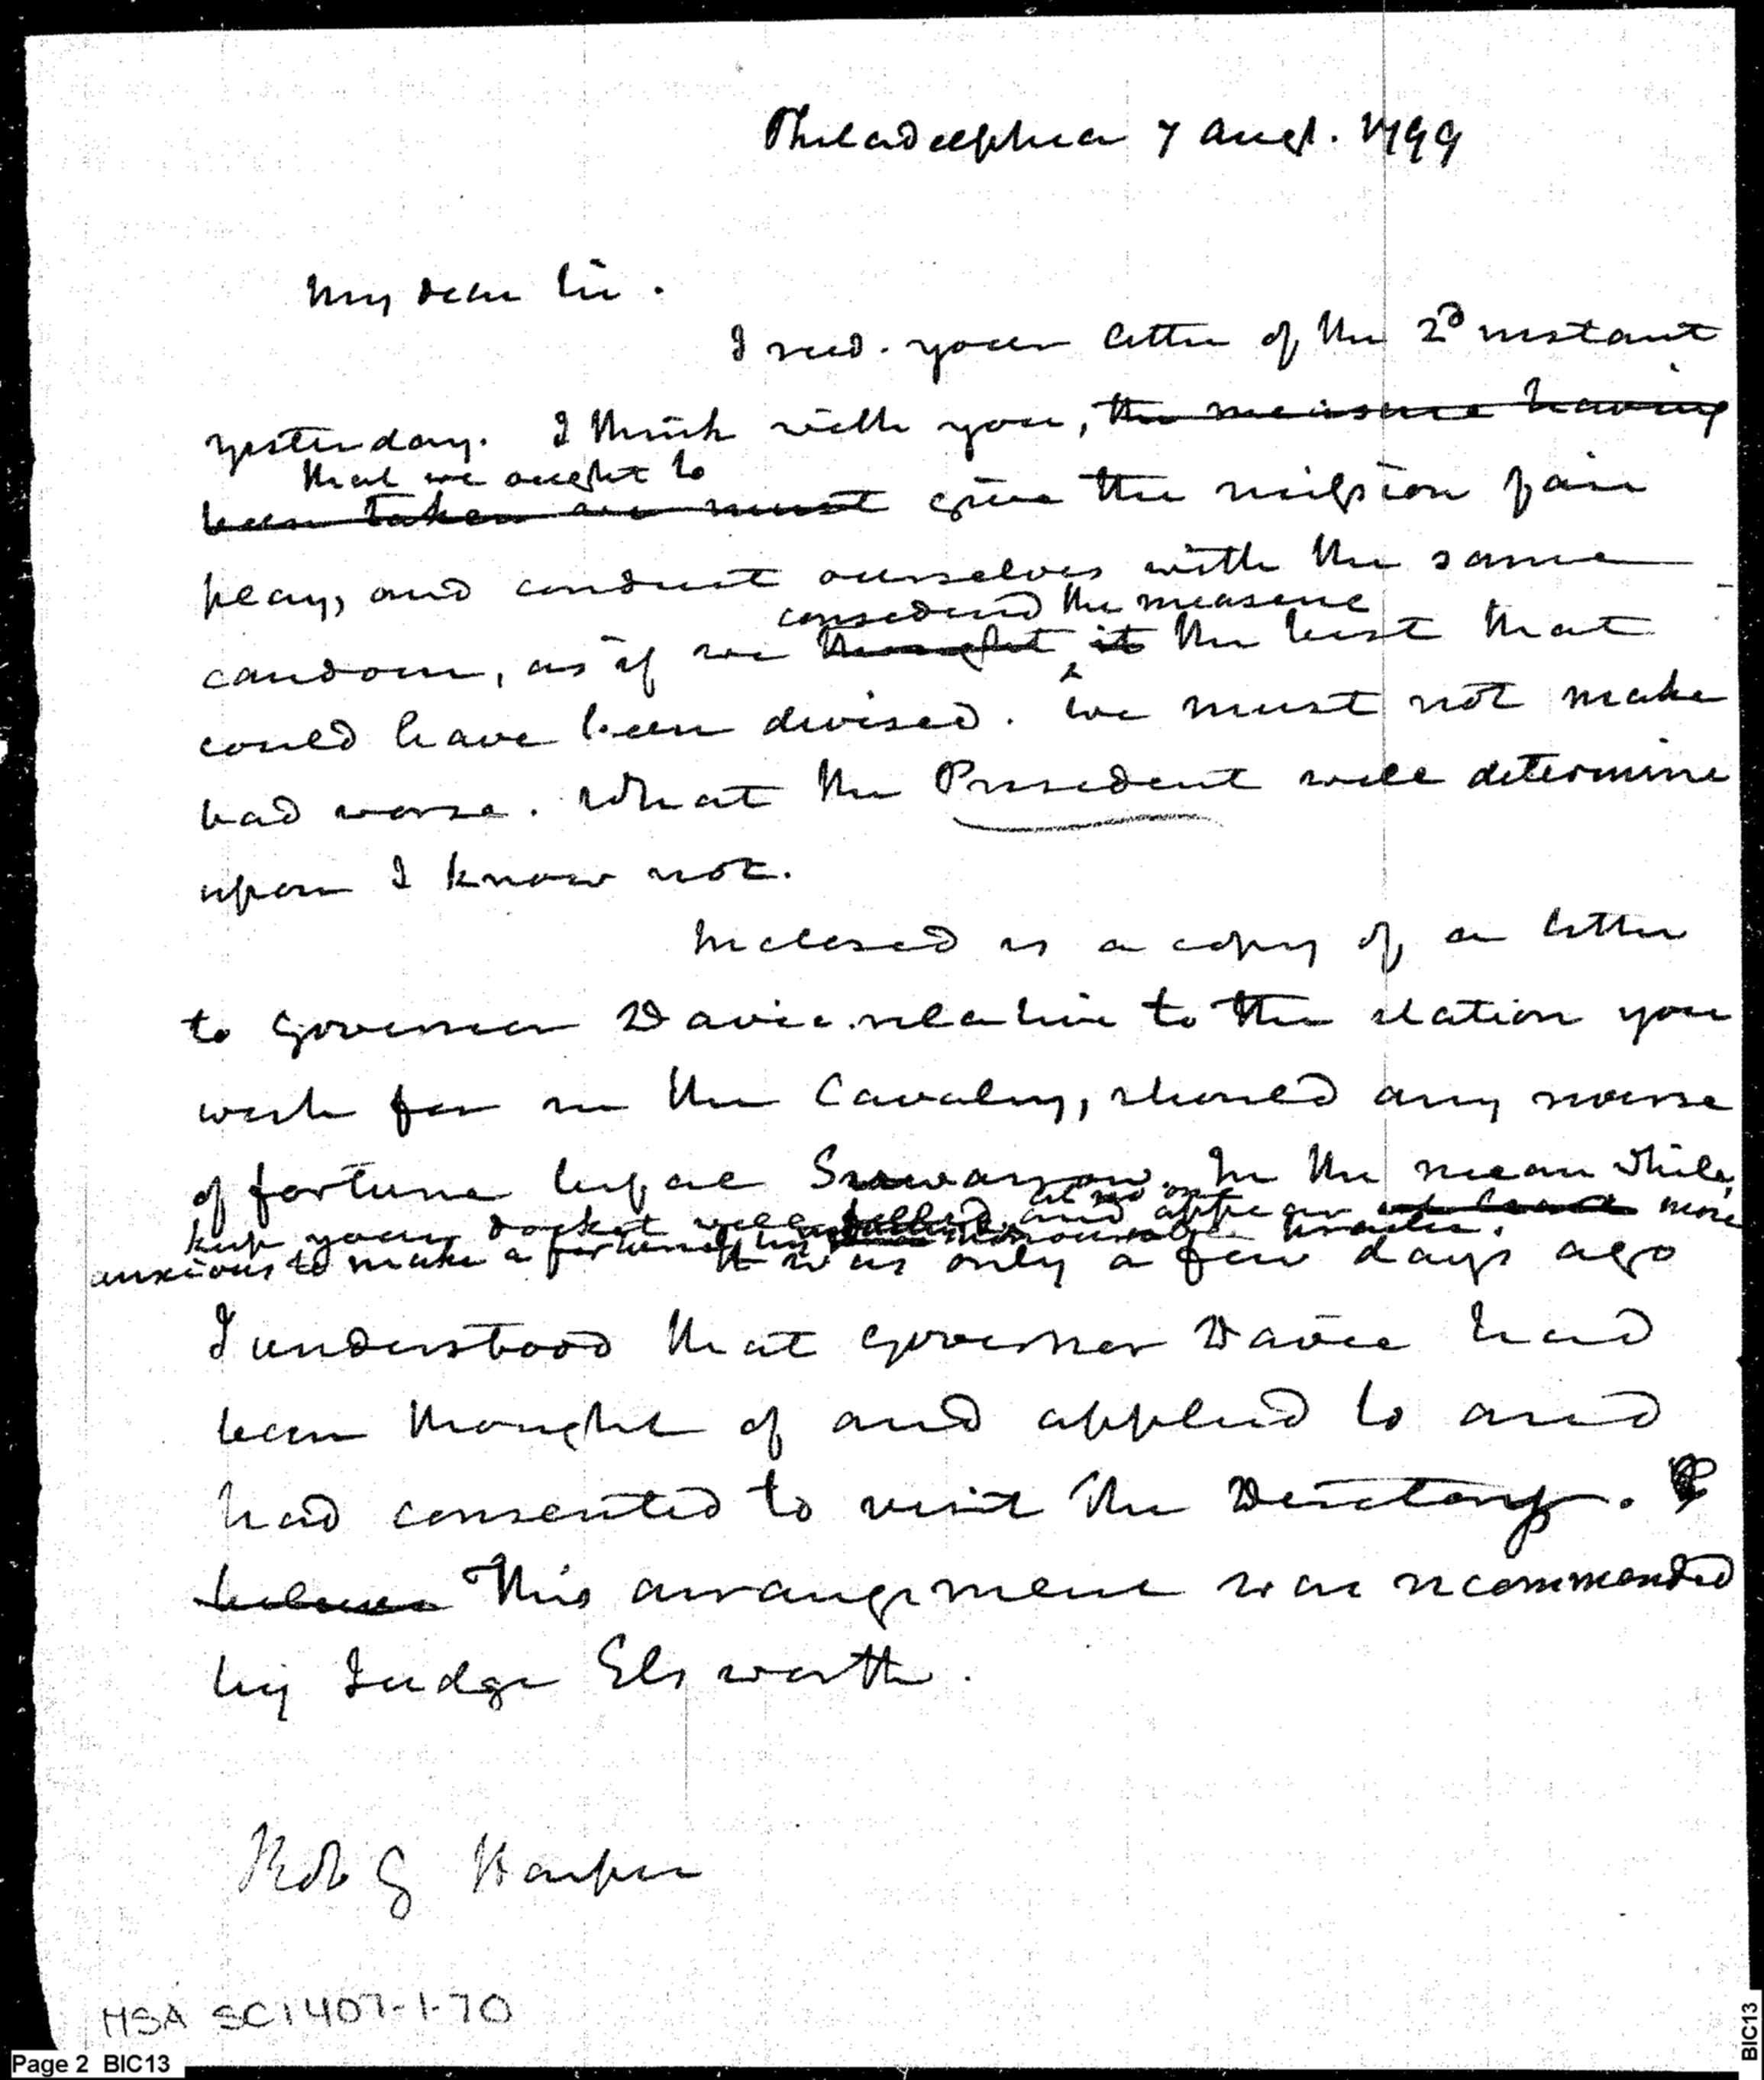 Philadelphia 7 Augt. 1799
My dear Sir.
I recd. your letter of the 2d instant
yesterday. I think with you, the measure having
that we ought to
been taken we must give the mission fair
play, and conduct ourselves with the same
considered the measure
candour, as if we thought it the best that
could have been devised. We must not make
bad worse. What the President will determine
upon I know not.
Inclosed is a copy of a letter
to Governor Davie relative to the station you
wish for in the Cavalry, should any reverse
of fortune befal Suwarrow. In the mean while,
keep your docket well filled, and appear more
anxious to make a fortune by honourable practice.
It was only a few days ago
I understood that Governor Davie had
been thought of and applied to and
had consented to visit the Directory.
This arrangement was recommended
by Judge Elsworth.
Rob G Harper
MSA SC1407-1-70
Page 2 BIC13
BIC13